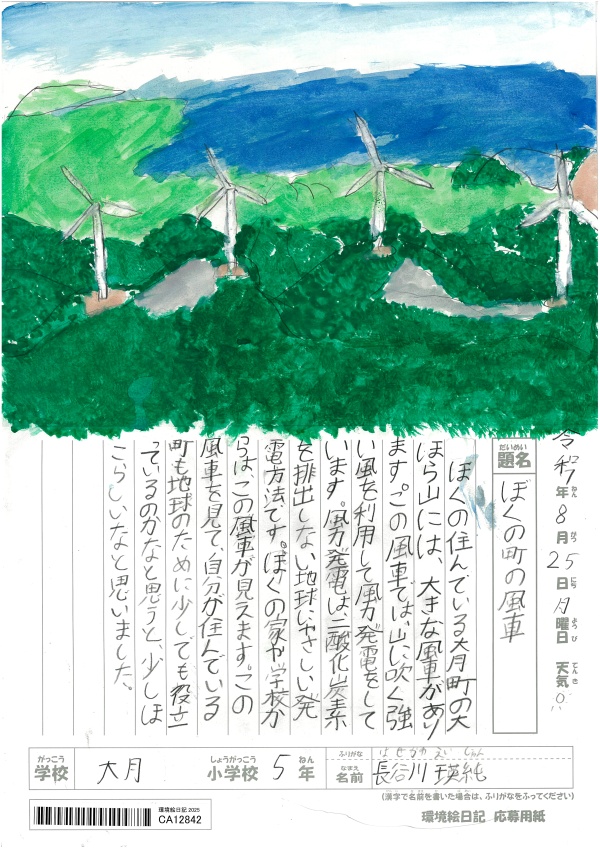 令和7年8月25日月曜日 天気
だいめい
題名
ぼくの町の風車
ぼくの住んでいる大月町の大
ほら山には、大きな風車があり
ます。この風車では、山に吹く強
い風を利用して風力発電をして
います。風力発電は、二酸化炭素
を排出しない地球にやさしい発
電方法です。ぼくの家や学校か
らは、この風車が見えます。この
風車を見て、自分が住んでいる
町も地球のために少しでも役立
っているのかなと思うと、少しほ
こらしいなと思いました。
がっこう
学校
大月
しょうがっこう
小学校
5
ねん
年
ふりがな
はせがわ えいしゅん
なまえ
名前
長谷川 瑛純
(漢字で名前を書いた場合は、ふりがなをふってください)
環境絵日記 2025
CA12842
環境絵日記 応募用紙